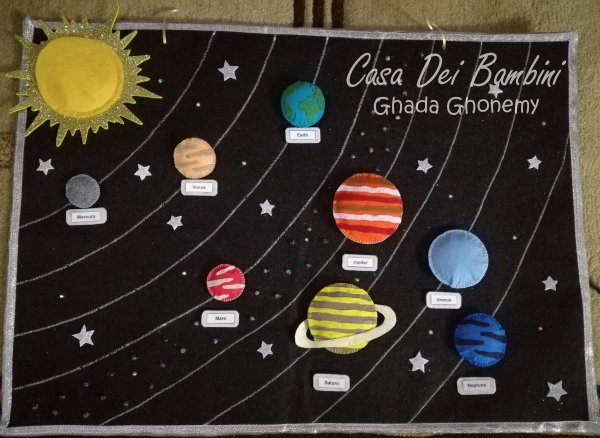 Casa Dei Bambini
Ghada Ghonemy
Earth
Venus
Mercury
Jupiter
Uranus
Mars
Saturn
Neptune